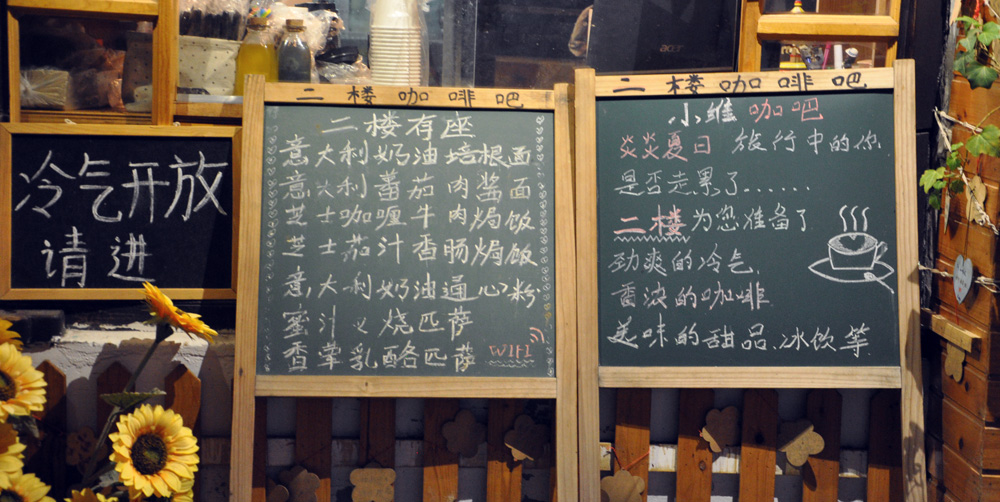 冷气开放
请进
二楼咖啡吧
二楼有座
意大利奶油培根面
意大利蕃茄肉酱面
芝士咖喱牛肉焗饭
芝士茄汁香肠焗饭
意大利奶油通心粉
蜜汁叉烧匹萨
香草乳酪匹萨
WIFI
二楼咖啡吧
小维咖吧
炎炎夏日 旅行中的你
是否走累了......
二楼为您准备了
劲爽的冷气
香浓的咖啡
美味的甜品.冰饮等
acer